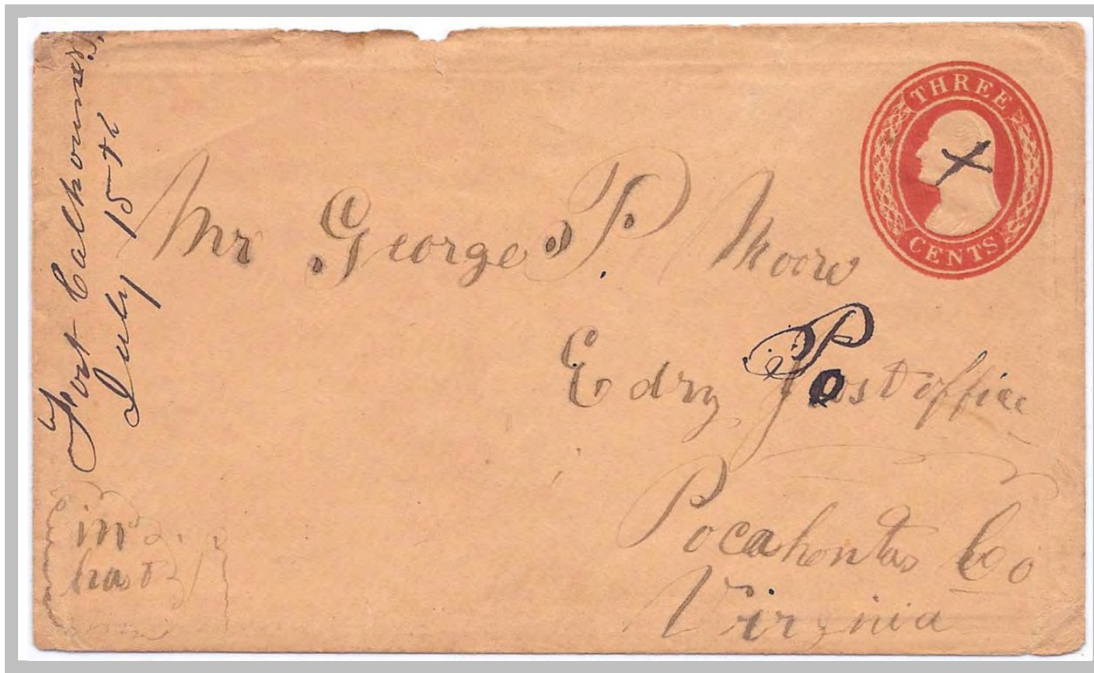 Fort Calhoun
July 15th
THREE
CENTS
Mr George P. Moore
Edry Post office
Pocahontas Co
Virginia
in
hast